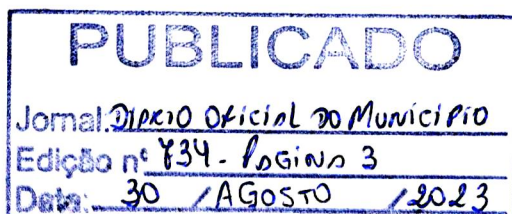 PUBLICADO
Jornal: DIÁRIO OFICIAL DO MUNICÍPIO
Edição nº 734 - PÁGINA 3
Data: 30 / AGOSTO / 2023